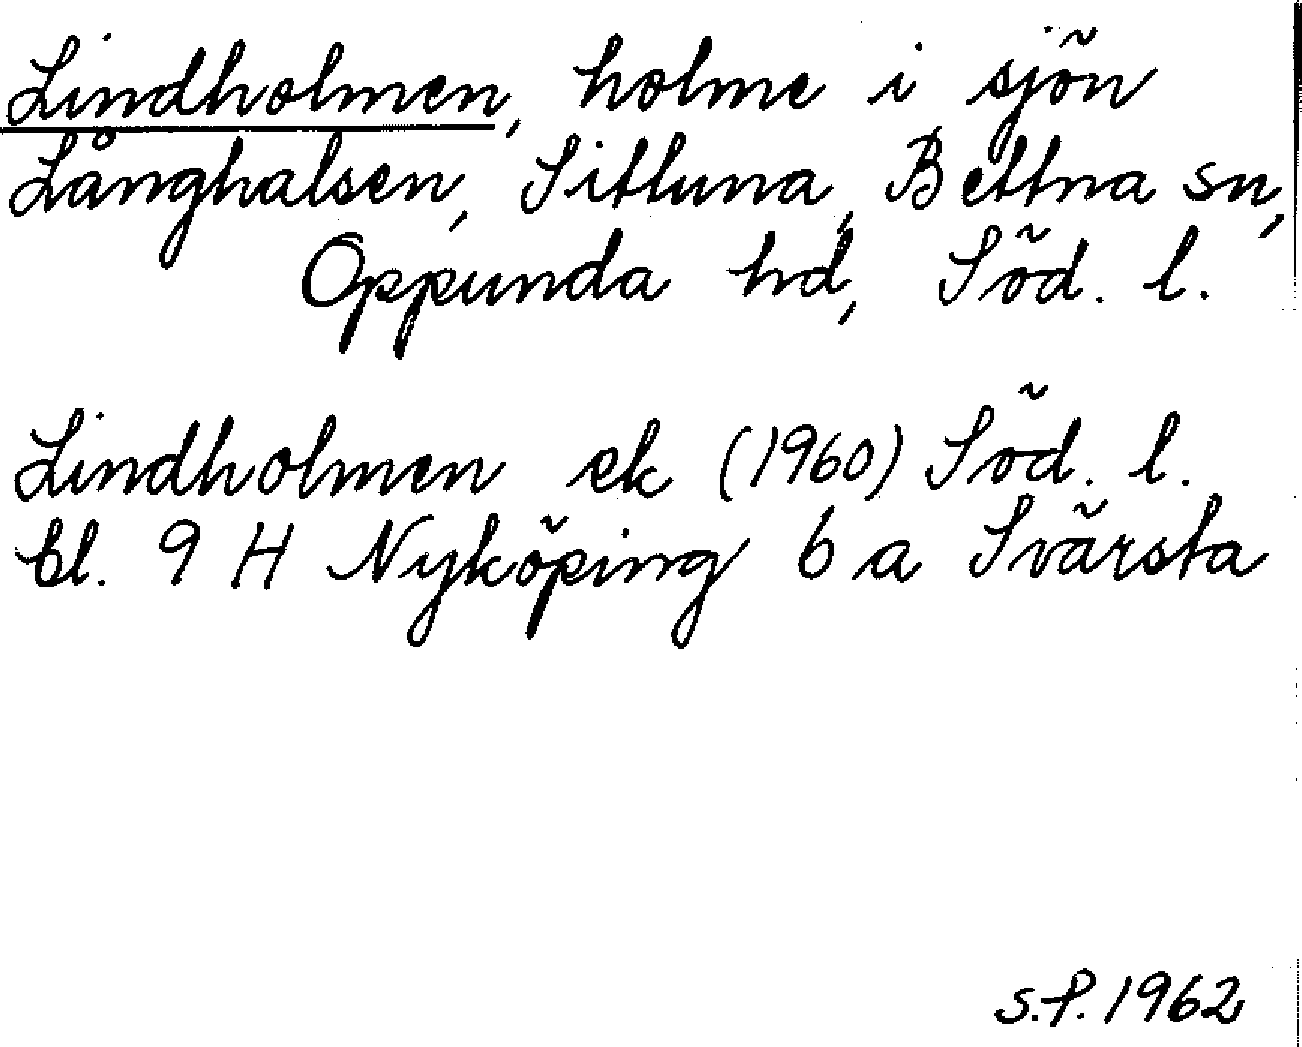 Lindholmen, holme i sjön
Långhalsen, Sittuna, Bettna sn,
Oppunda hd, Söd. l.
Lindholmen ek (1960) Söd. l.
bl. 9 H Nyköping 6 a Svärsta
S.P. 1962